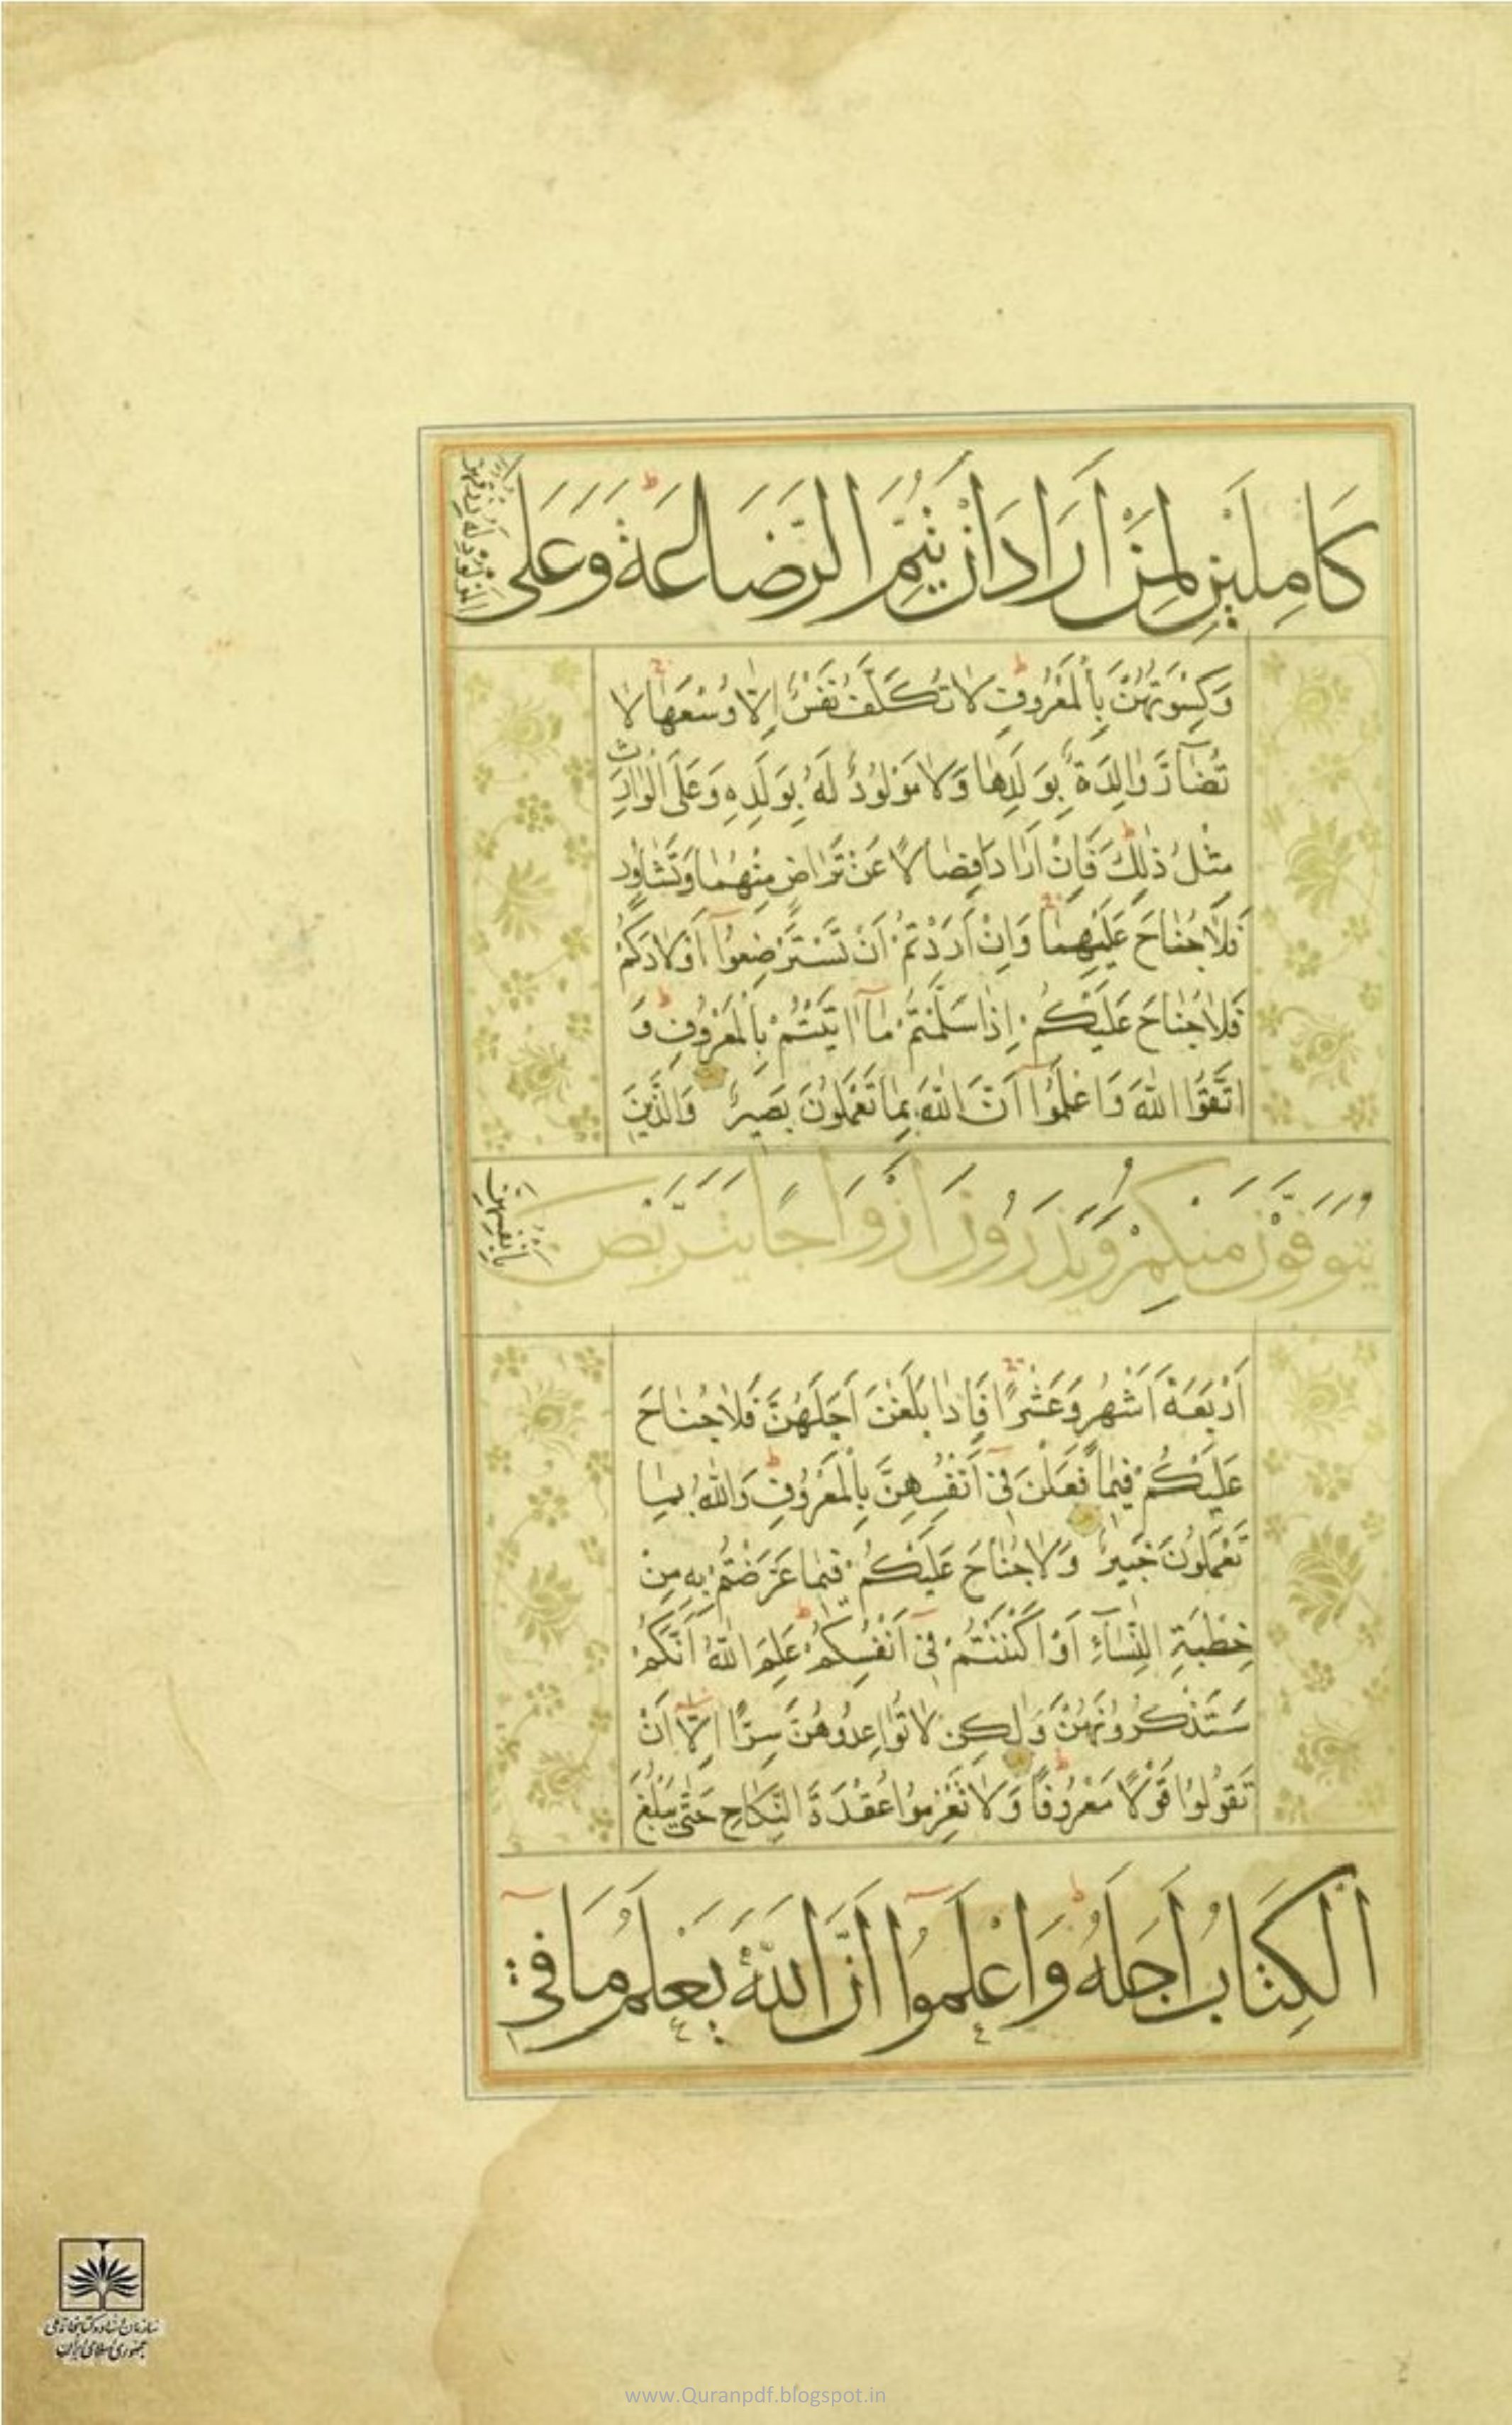 كَامِلَيْنِ لِمَنْ أَرَادَ أَنْ يُتِمَّ الرَّضَاعَةَ وَعَلَى
الْمَوْلُودِ لَهُ رِزْقُهُنَّ
وَكِسْوَتُهُنَّ بِالْمَعْرُوفِ لَا تُكَلَّفُ نَفْسٌ إِلَّا وُسْعَهَا لَا
تُضَآرَّ وَالِدَةٌ بِوَلَدِهَا وَلَا مَوْلُودٌ لَهُ بِوَلَدِهِ وَعَلَى الْوَارِثِ
مِثْلُ ذَلِكَ فَإِنْ أَرَادَا فِصَالًا عَنْ تَرَاضٍ مِنْهُمَا وَتَشَاوُرٍ
فَلَا جُنَاحَ عَلَيْهِمَا وَإِنْ أَرَدْتُمْ أَنْ تَسْتَرْضِعُوٓا أَوْلَادَكُمْ
فَلَا جُنَاحَ عَلَيْكُمْ إِذَا سَلَّمْتُمْ مَآ اٰتَيْتُمْ بِالْمَعْرُوفِ وَ
اتَّقُوا اللّٰهَ وَاعْلَمُوٓا أَنَّ اللّٰهَ بِمَا تَعْمَلُونَ بَصِيرٌ وَالَّذِينَ
يُتَوَفَّوْنَ مِنْكُمْ وَيَذَرُونَ أَزْوَاجًا يَتَرَبَّصْنَ
بِأَنْفُسِهِنَّ
أَرْبَعَةَ أَشْهُرٍ وَعَشْرًا فَإِذَا بَلَغْنَ أَجَلَهُنَّ فَلَا جُنَاحَ
عَلَيْكُمْ فِيمَا فَعَلْنَ فِىٓ أَنْفُسِهِنَّ بِالْمَعْرُوفِ وَاللّٰهُ بِمَا
تَعْمَلُونَ خَبِيرٌ وَلَا جُنَاحَ عَلَيْكُمْ فِيمَا عَرَّضْتُمْ بِهِ مِنْ
خِطْبَةِ النِّسَآءِ أَوْ أَكْنَنْتُمْ فِىٓ أَنْفُسِكُمْ عَلِمَ اللّٰهُ أَنَّكُمْ
سَتَذْكُرُونَهُنَّ وَلَكِنْ لَا تُوَاعِدُوهُنَّ سِرًّا إِلَّآ أَنْ
تَقُولُوا قَوْلًا مَعْرُوفًا وَلَا تَعْزِمُوا عُقْدَةَ النِّكَاحِ حَتَّى يَبْلُغَ
الْكِتَابُ أَجَلَهُ وَاعْلَمُوٓا أَنَّ اللّٰهَ يَعْلَمُ مَا فِىٓ
سازمان اسناد و کتابخانه ملی
جمهوری اسلامی ایران
www.Quranpdf.blogspot.in